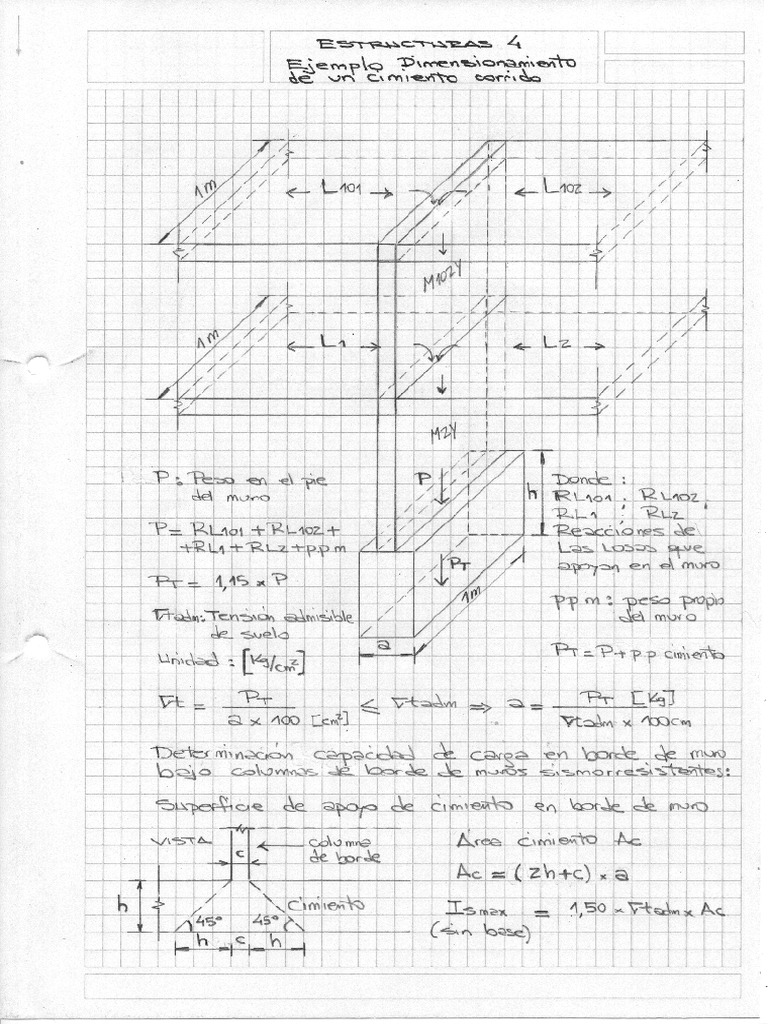 ESTRUCTURAS 4
Ejemplo Dimensionamiento
de un cimiento corrido
1m
L101
L102
M102Y
1m
L1
L2
M2Y
P: Peso en el pie
del muro
P= RL101 + RL102 +
+RL1 + RL2 + ppm
PT = 1,15 x P
σtadm: Tensión admisible
de suelo
Unidad : [Kg/cm²]
P
h
PT
1m
a
Donde :
RL101 ; RL102;
RL1 ; RL2
Reacciones de
Las losas que
apoyan en el muro
ppm : peso propio
del muro
PT = P + pp cimiento
σt = PT / a x 100 [cm²] ≤ σtadm ⇒ a = PT [Kg] / σtadm x 100cm
Determinación capacidad de carga en borde de muro
bajo columnas de borde de muros sismorresistentes:
Superficie de apoyo de cimiento en borde de muro
VISTA
c
columna
de borde
h
cimiento
45°
45°
h
c
h
Area cimiento Ac
Ac = (2h+c) x a
Ismax = 1,50 x σtadm x Ac
(sin base)